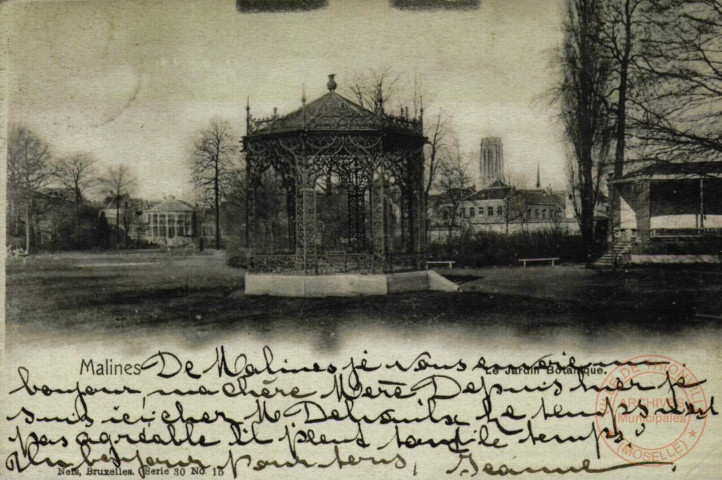 Malines
Le Jardin Botanique.
De Malines je vous envoie un
bonjour, ma chère Mère Depuis hier je
suis ici cher M Del le temps n'est
pas agréable il pleut tout le temps.
Un bonjour pour tous, Jeanne
Nels, Bruxelles. Serie 30 No 15
VILLE DE THIONVILLE
ARCHIVES
Municipales
(MOSELLE)